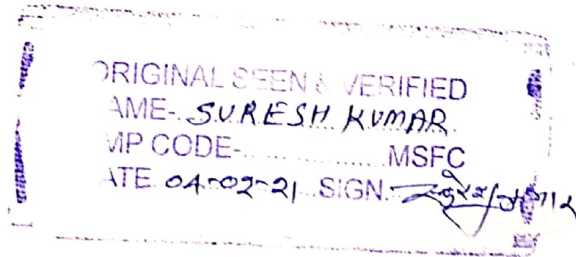 ORIGINAL SEEN & VERIFIED
AME- SURESH KUMAR
MP CODE-.................MSFC
ATE. 04-02-21 SIGN.- सुरेश कुमार